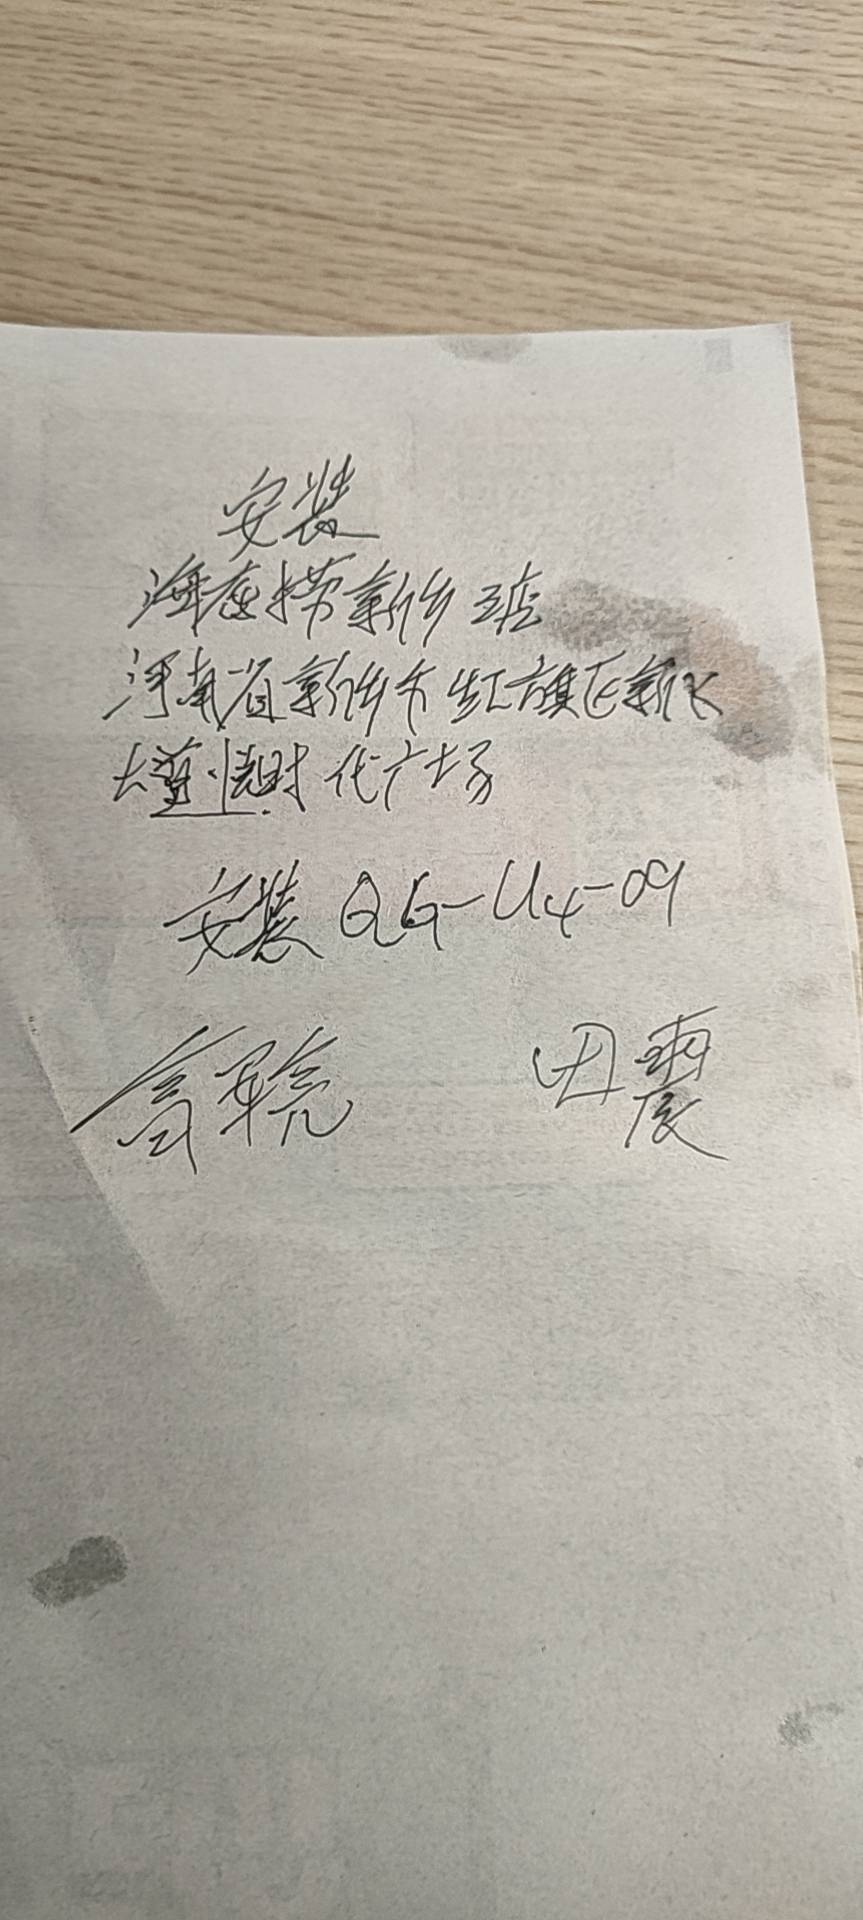 安装
海底捞新乡三店
河南省新乡市红旗区新飞
大道 时代广场
安装 QG-U4-09
田震